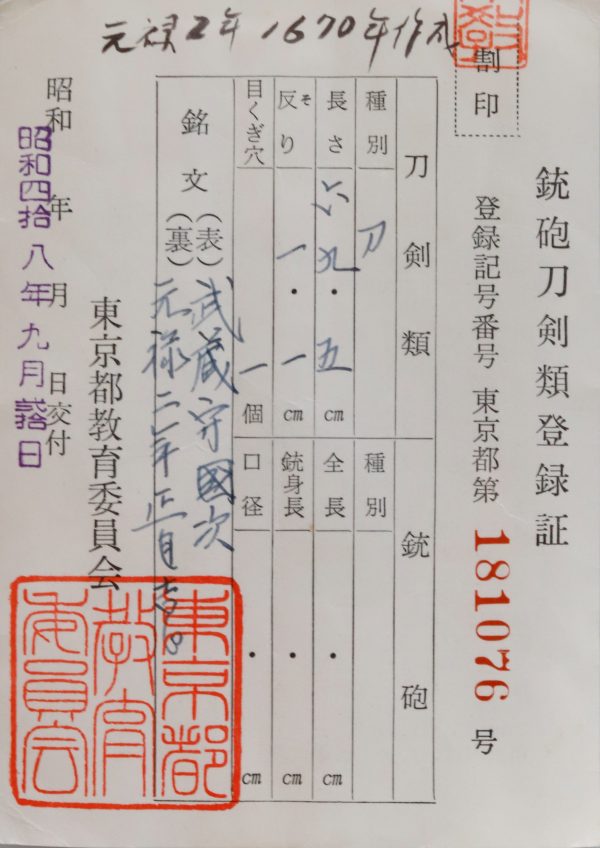 元禄2年 1670年作成
銃砲刀剣類登録証
割印
登録記号番号 東京都第 181076 号
刀剣類
種別 刀
長さ 六九・五 cm
反り そ 一・一 cm
目くぎ穴 一 個
銃砲
種別
全長 ・ cm
銃身長 ・ cm
口径 ・ cm
銘文 (表) 武蔵守國次
(裏) 元禄二年正月吉日
東京都教育委員会
昭和 年 月 日交付
昭和四拾八年九月 日
東京都
教育
委員会